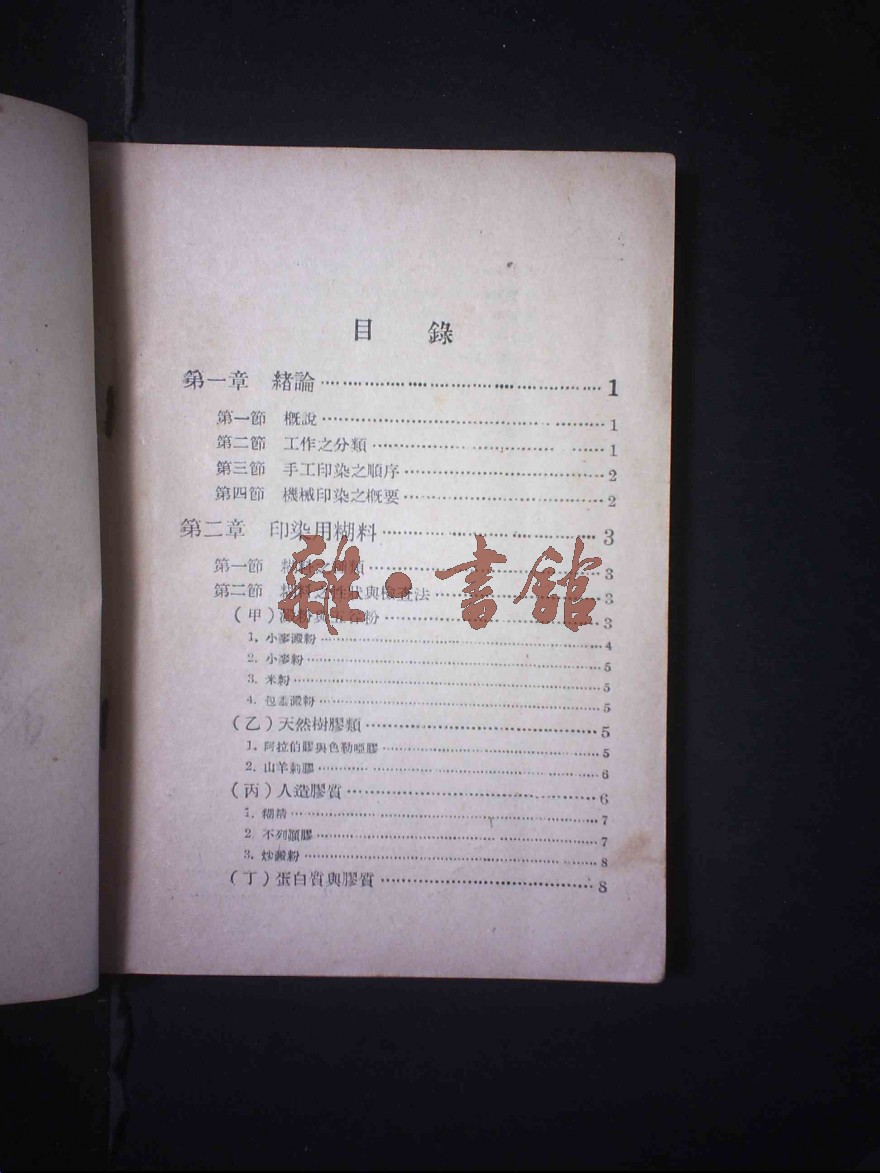 目 錄
第一章 緒論 1
第一節 概說 1
第二節 工作之分類 1
第三節 手工印染之順序 2
第四節 機械印染之概要 2
第二章 印染用糊料 3
第一節 糊料之種類 3
第二節 糊料之性狀與檢查法 3
(甲)澱粉與五谷粉 3
1. 小麥澱粉 4
2. 小麥粉 5
3. 米粉 5
4. 包澱粉 5
(乙)天然樹膠類 5
1. 阿拉伯膠與色勒啞膠 5
2. 山羊刺膠 6
(丙)人造膠質 6
1. 糊精 7
2. 不列顛膠 7
3. 炒澱粉 8
(丁)蛋白質與膠質 8
雜·書館